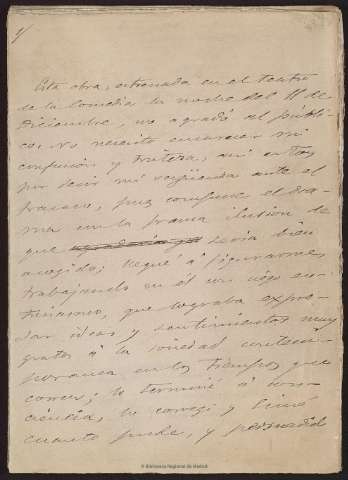 1/
Esta obra, estrenada en el teatro
de la Comedia la noche del 11 de
Diciembre, no agradó al públi-
co. No necesito encarecer mi
confusión y tristeza, así estoy
por decir mi vergüenza ante el
fracaso, pues compuse el dra-
ma en la franca ilusión de
que agradaría y sería bien
acogido; llegué á figurarme,
trabajando en él con ciego en-
tusiasmo, que lograba expre-
sar ideas y sentimientos muy
gratos á la sociedad contem-
poránea en los tiempos que
corren; lo terminé á con-
ciencia, lo corregí y limé
cuanto pude, y persuadid
© Biblioteca Regional de Madrid